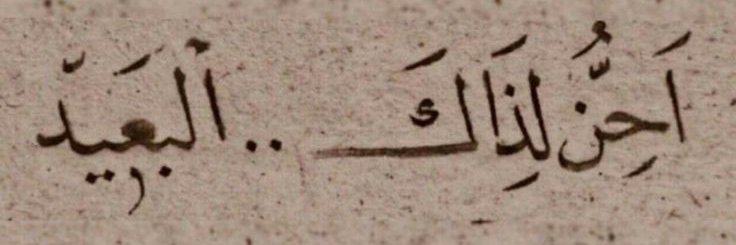 اَحِنُّ لِذَاكَ .. اَلْبَعِيدّ